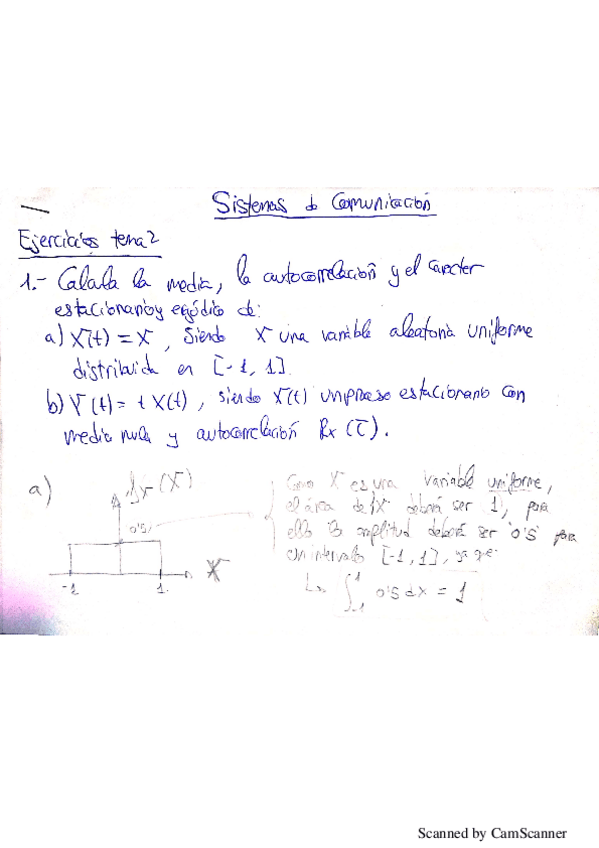 Sistemas de Comunicación
Ejercicios tema 2
1.- Calcula la media, la autocorrelación y el caracter
estacionario y ergódico de:
a) X(t) = X, siendo X una variable aleatoria uniforme
distribuida en [-1, 1].
b) Y(t) = t X(t), siendo X(t) un proceso estacionario con
media nula y autocorrelación Rx(τ).
a)
fx(X)
0'5
-1
1
X
Como X es una variable uniforme,
el área de fX deberá ser 1, para
ello la amplitud deberá ser 0'5 para
un intervalo [-1, 1], ya que:
∫_{-1}^{1} 0'5 dx = 1
Scanned by CamScanner